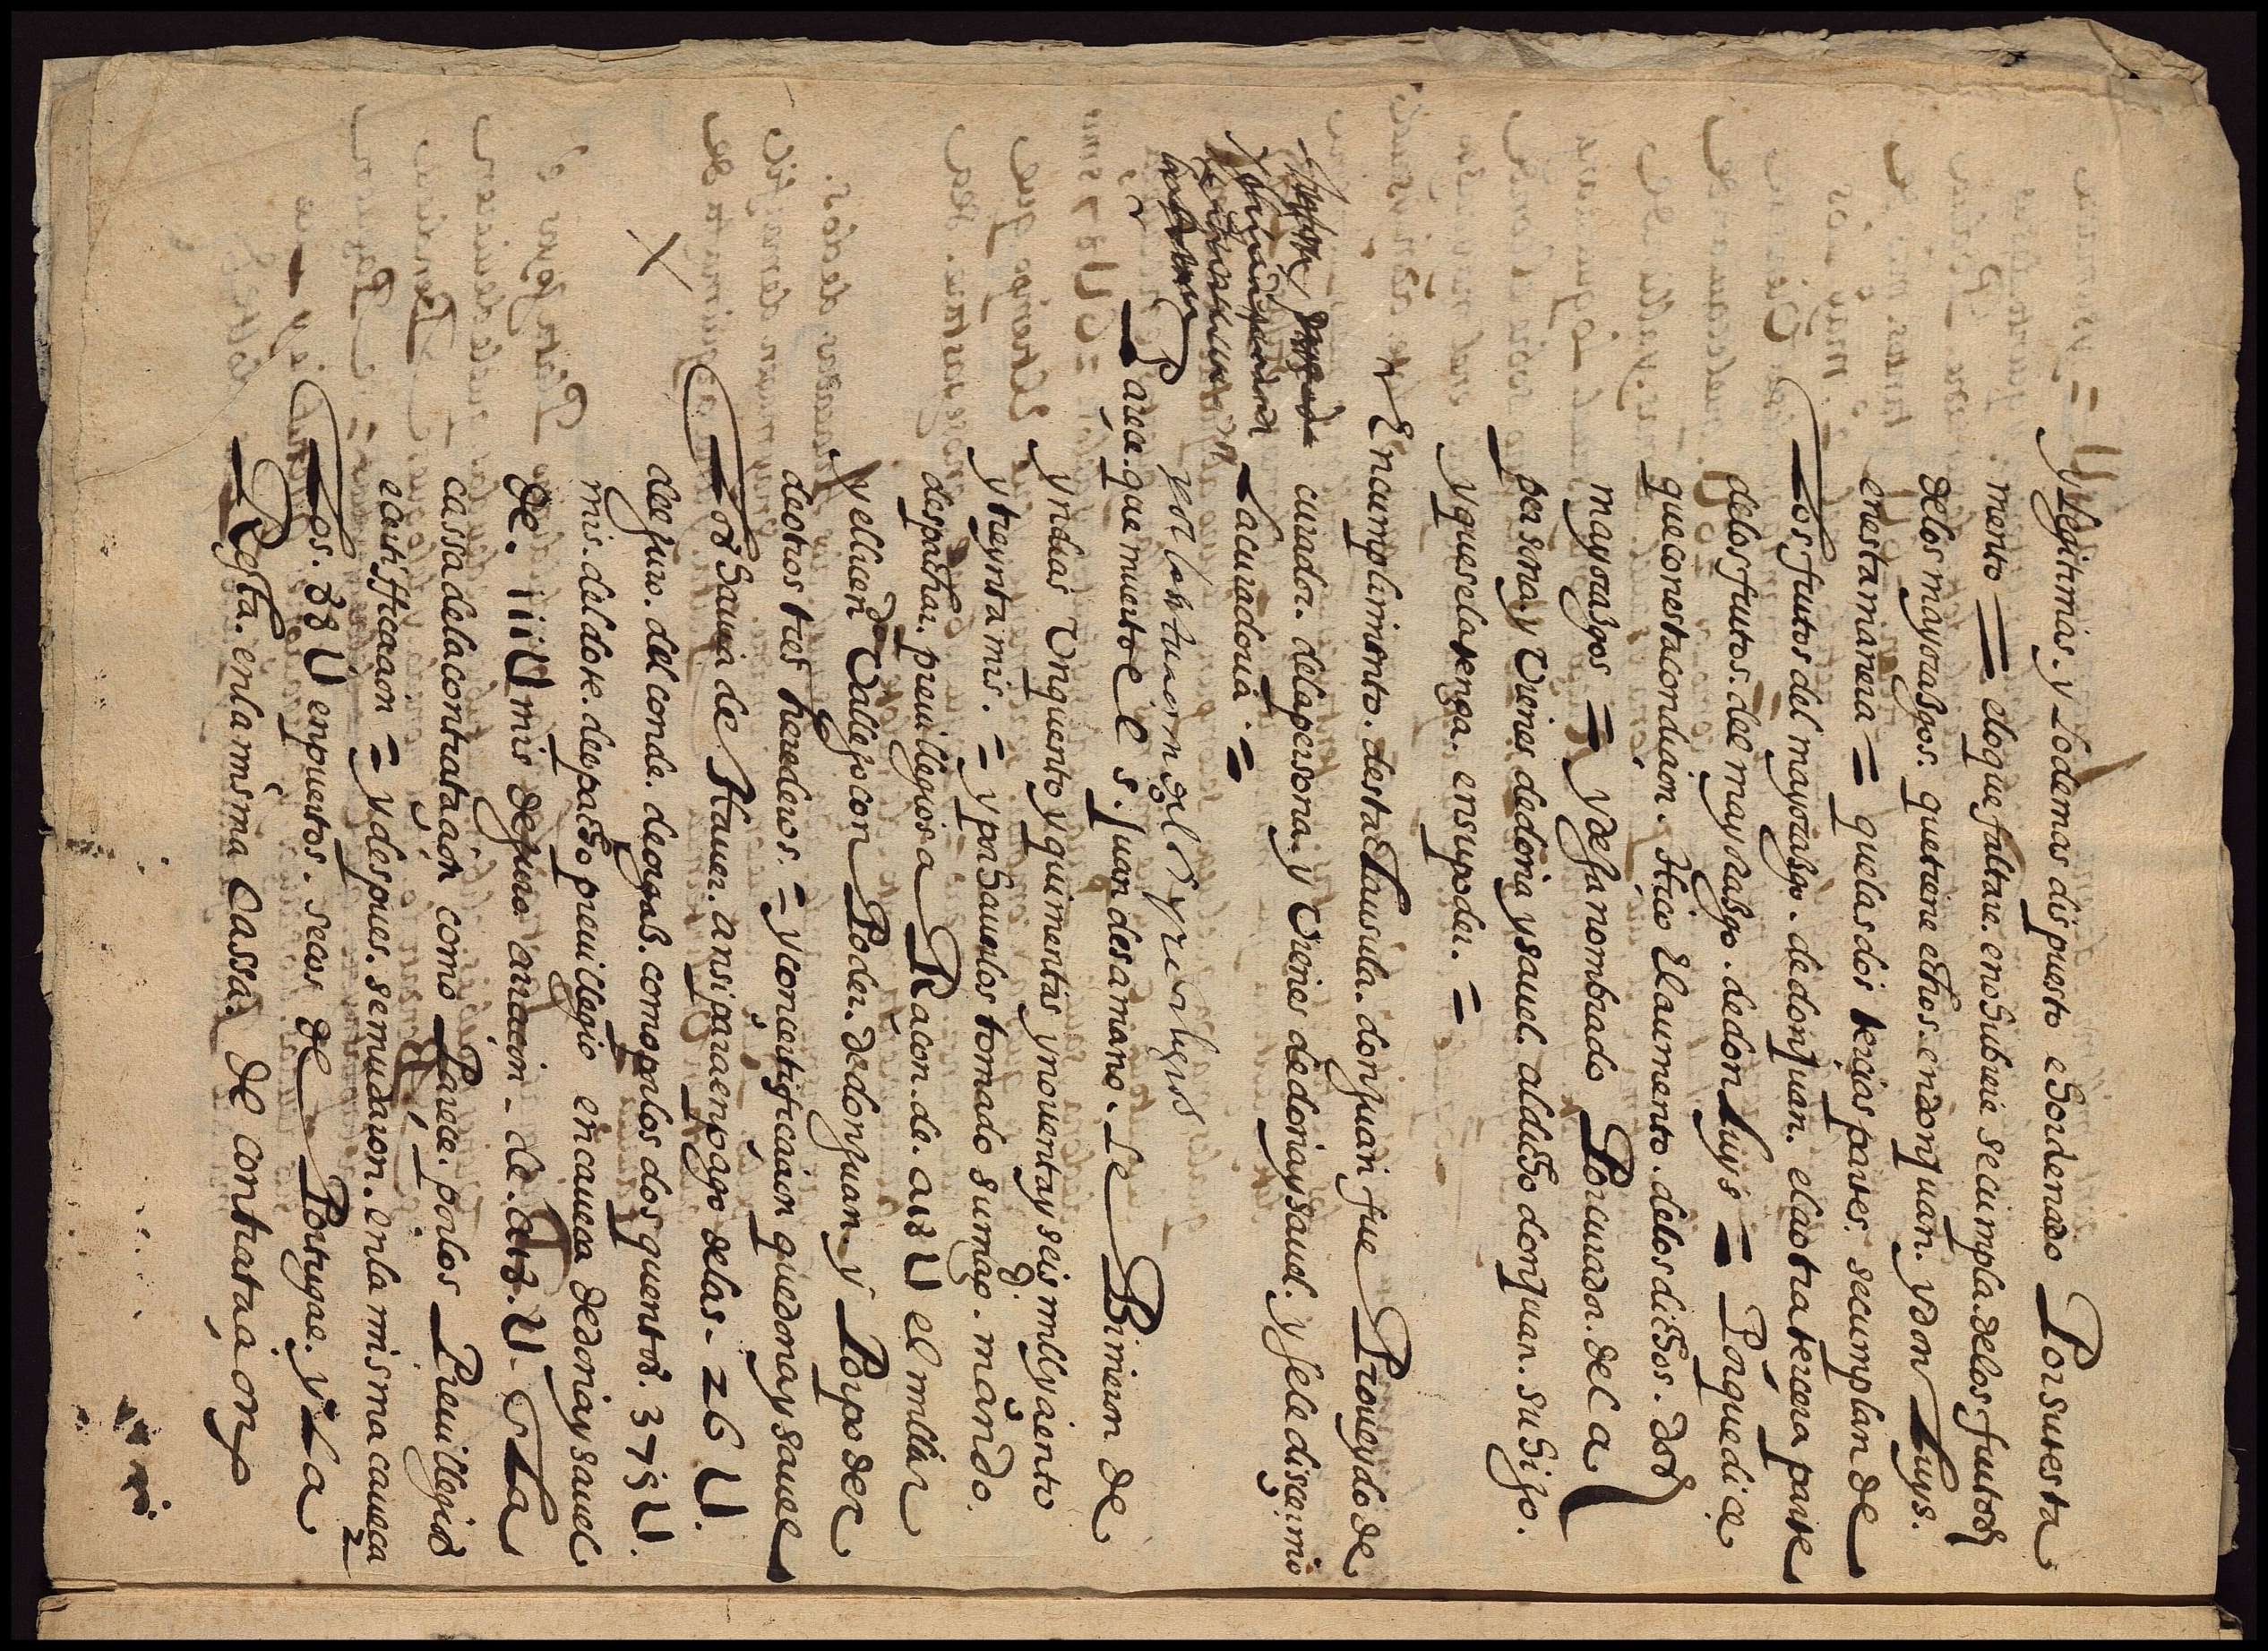 y legitimas. y Lo demas dispuesto e hordenado Por su testa
mento = e lo que faltare. en o hubiere se cumpla. de los frutos
de los mayorasgos. que tiene echos. en don Juan. y don Luys.
en esta manera = que las dos tercias partes. se cumplan de
Los frutos del mayorasgo. de don Juan. e la otra tercera parte
de los frutos. del mayorasgo. de don Luys = Porque dice
que con esta condicion. Hico El aumento. de los dichos. dos
mayorasgos = y deja nombrado Por curador. de la
persona. y Vienes de doña ysauel. al dicho don Juan. su hijo.
y que se la tenga. en su poder. =
En cumplimiento. desta clausula. don Juan fue Proueydo de
curador. de la persona. y Vienes de doña ysauel. y se le discernio
La curadoria. =
por los tuuo en
Parece. que muerto el s. Juan de samano. se Bieron de
yndias Un quento y quinientas y nouenta y seis mill y ciento
y treynta mrs. = y por hauerlos tomado su mag. mando.
despachar. preuillegios a Racon. de. U el millar
y el licen.do Vallejo con Poder. de don Juan. y Por poder
de otros tres herederos. = y con certifficacion que doña ysauel
Los hauia de Hauer. ansi para en pago de las. 26 U.
de juro. del conde. de orgas. como por los dos quentos. 375 U.
mrs. del dote. de Pacho preuillegio en caueca de doña ysauel
de. iiiU mrs de juro a racon - de. U. e La
cassa de la contratacion como Parece. por los Preuillegios
e certifficacion = y despues. se mudaron. en la misma caueca
Los. 88 U en puertos. secos de Portugal. y La
Resta. en la misma Cassa. de contratacion